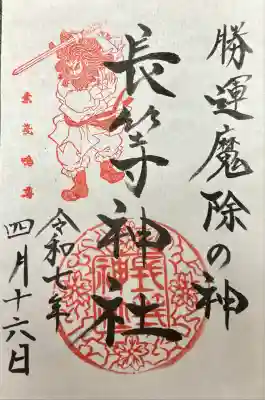 勝運魔除の神
長等神社
素戔嗚尊
令和七年
四月十六日